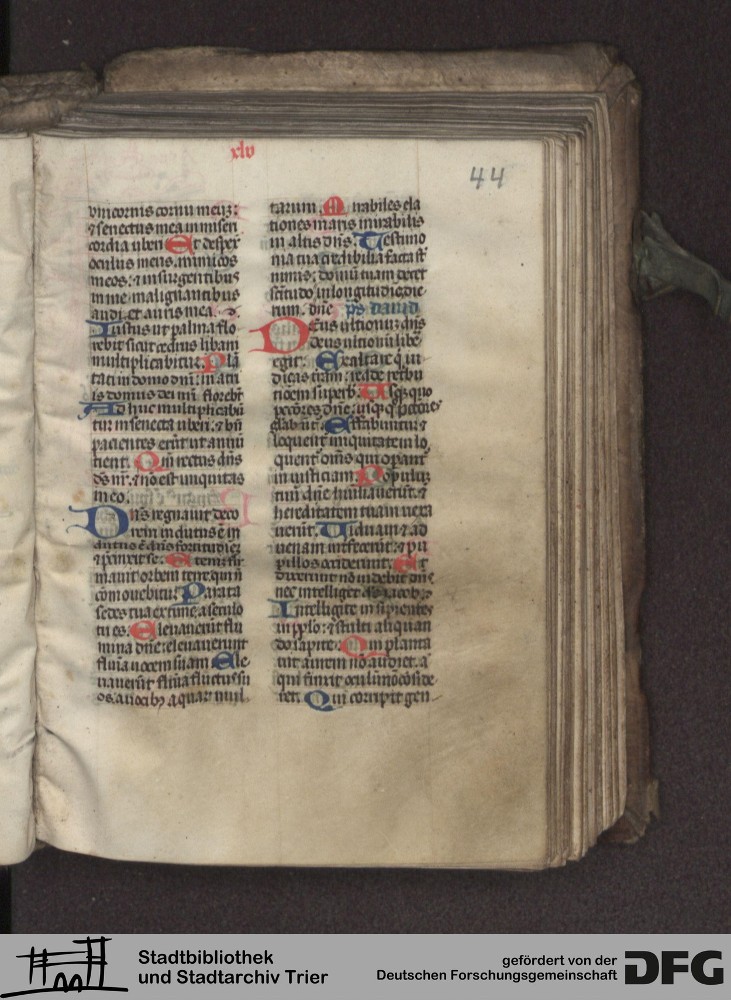 xlv
44
vnicornis cornu meuz:
⁊ senectus mea in miseri
cordia uberi Et despex
oculus meus inimicos
meos: ⁊ in insurgentibus
in me malignantibus
audi et auris mea.
Iustus ut palma flo
rebit sicut cedrus libani
multiplicabitur. Plā
tati in domo dn̄i: in atri
is domus dei nr̄i florebt̄
Ad huc multiplicabū
tur in senecta uberi: ⁊ bn̄
pacientes erūt ut annū
tient. Qm̄ rectus dn̄s
ds̄ nr̄: ⁊ nō est iniquitas
in eo.
Dn̄s regnauit deco
rem indutus ē in
dutus ē dn̄s fortitudiez
⁊ p̄cinxit se. Etenim fir
mauit orbem terre qui n̄
cōmouebitur. Parata
sedes tua ex tunc. a seculo
tu es. Eleuauerūt flu
mina dn̄e: eleuauerunt
flūia uocem suam Ele
uauerūt flūia fluctus su
os. a uocibꝫ aquarū mul
tarum. Mirabiles ela
tiones maris mirabilis
in altis dn̄s. Testimo
nia tua credibilia facta sūt
nimis: domū tuam decet
sc̄itudo in longitudiē die
rum. dn̄e ps dauid
Deus ultionuz dn̄s
deus ultionū libe
egit. Exaltare q̄ iu
dicas terram: redde retribu
tioem superb. Usqꝫ quo
pccōres dn̄e: usqꝫ q̄ pctōres
glabūt. Effabuntur ⁊
loquent̄ iniquitatem lo
quent̄ om̄s qui opant̄
in iusticiam. Populuz
tuū dn̄e hūiliauerūt. ⁊
hereditatem tuam uexa
uerūt. Uiduam ⁊ ad
uenam interfecerūt: ⁊ pu
pillos occiderunt. Et
dixerunt nō uidebit dn̄s
nec intelliget ds̄ iacob
Intelligite insipientes
in pplo: ⁊ stulti aliquan
do sapite. Qui planta
uit aurem nō audiet. a
qui finxit oculū nō cōside
ret. Qui corripit gen
Stadtbibliothek
und Stadtarchiv Trier
gefördert von der
Deutschen Forschungsgemeinschaft
DFG